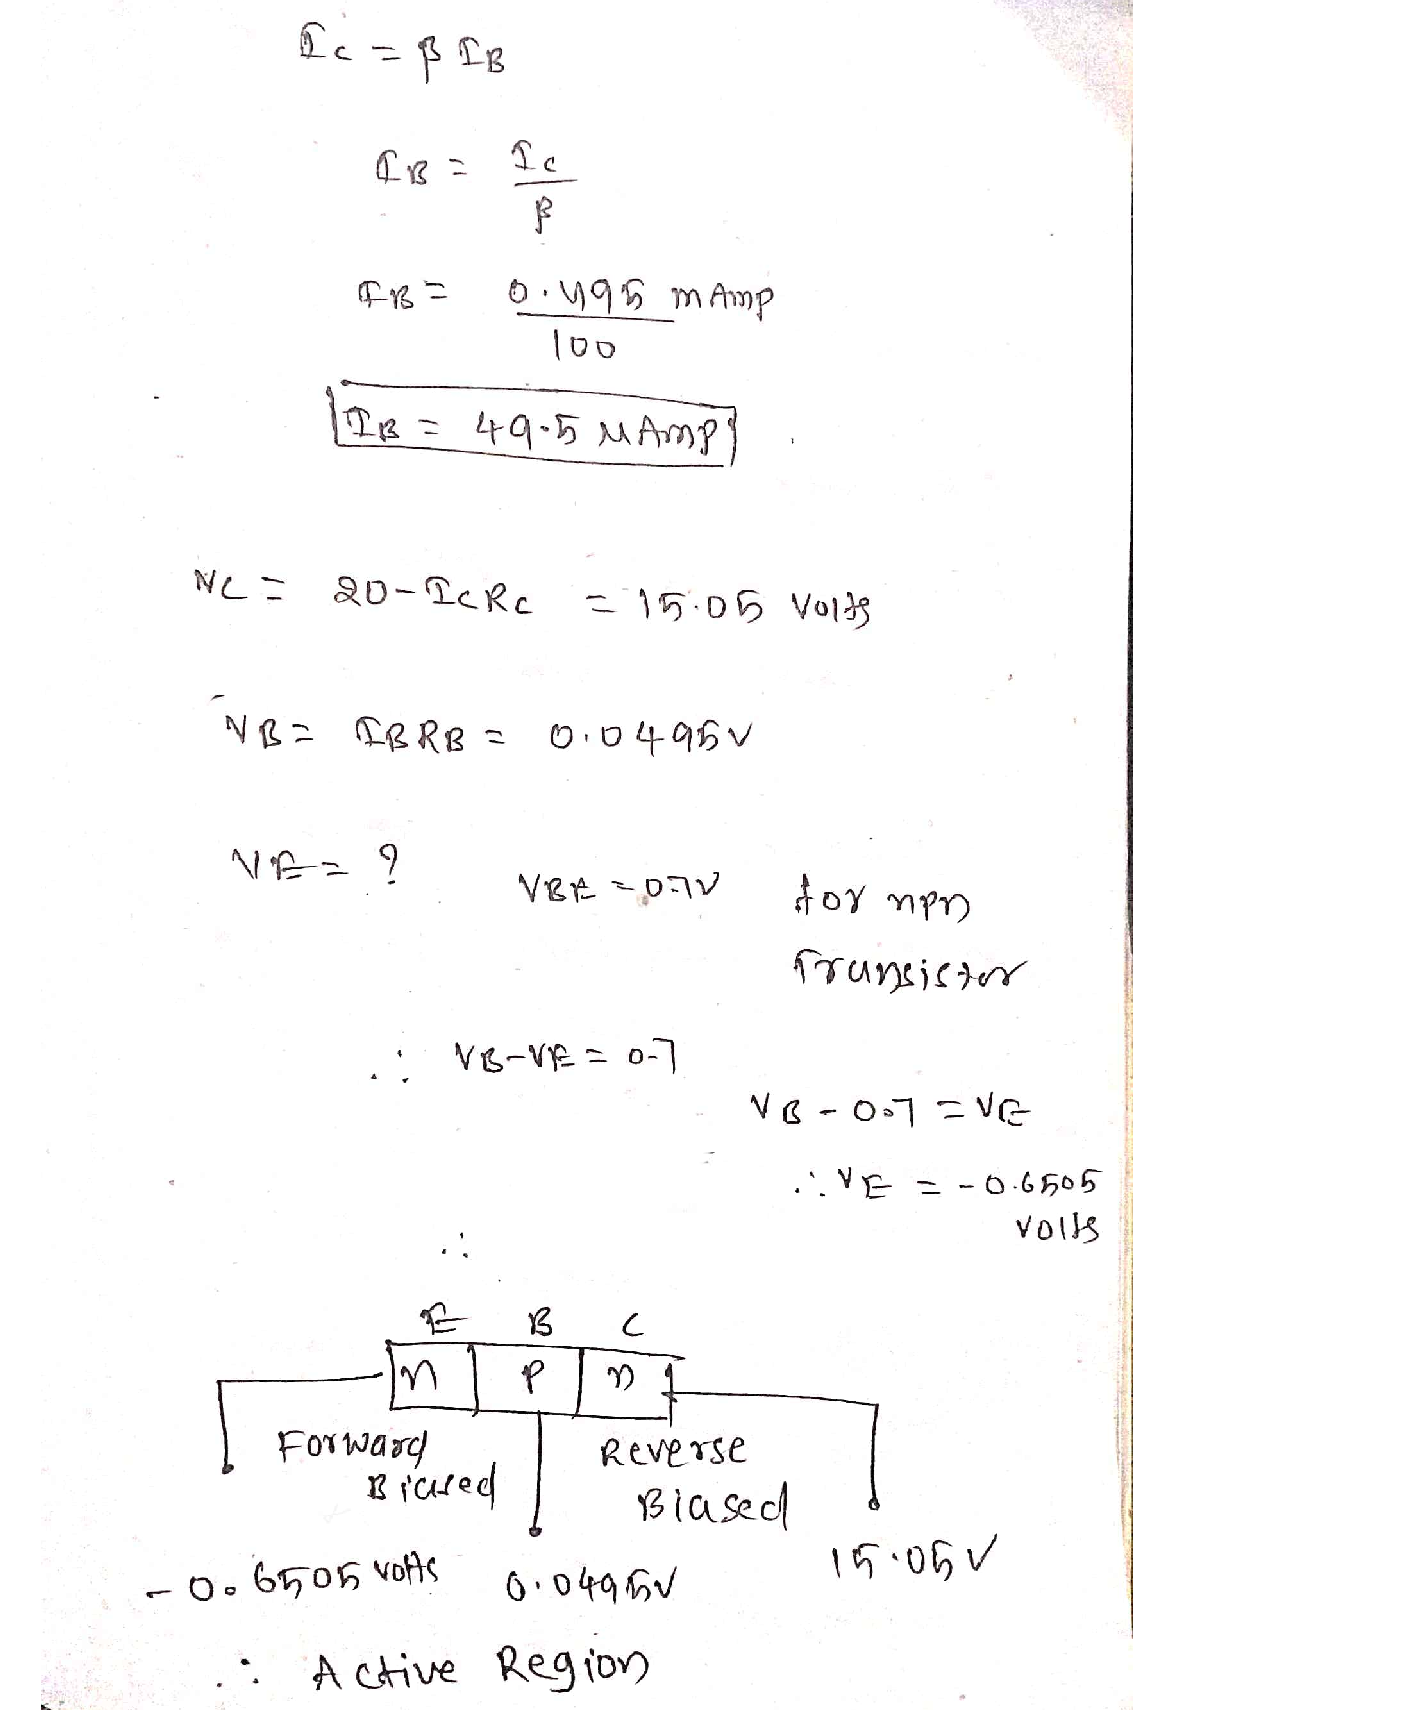 Ic = β IB
IB = Ic
β
IB = 0.495 mAmp
100
IB = 49.5 μAmp
VC = 20 - IcRc = 15.05 Volts
VB = IBRB = 0.0495v
VE = ?
VBE = 0.7V for npn
Transistor
∴ VB-VE = 0.7
VB - 0.7 = VE
∴ VE = -0.6505
volts
∴
E B C
n P n
Forward Reverse
Biased Biased
-0.6505 volts 0.0495v 15.05V
∴ Active Region